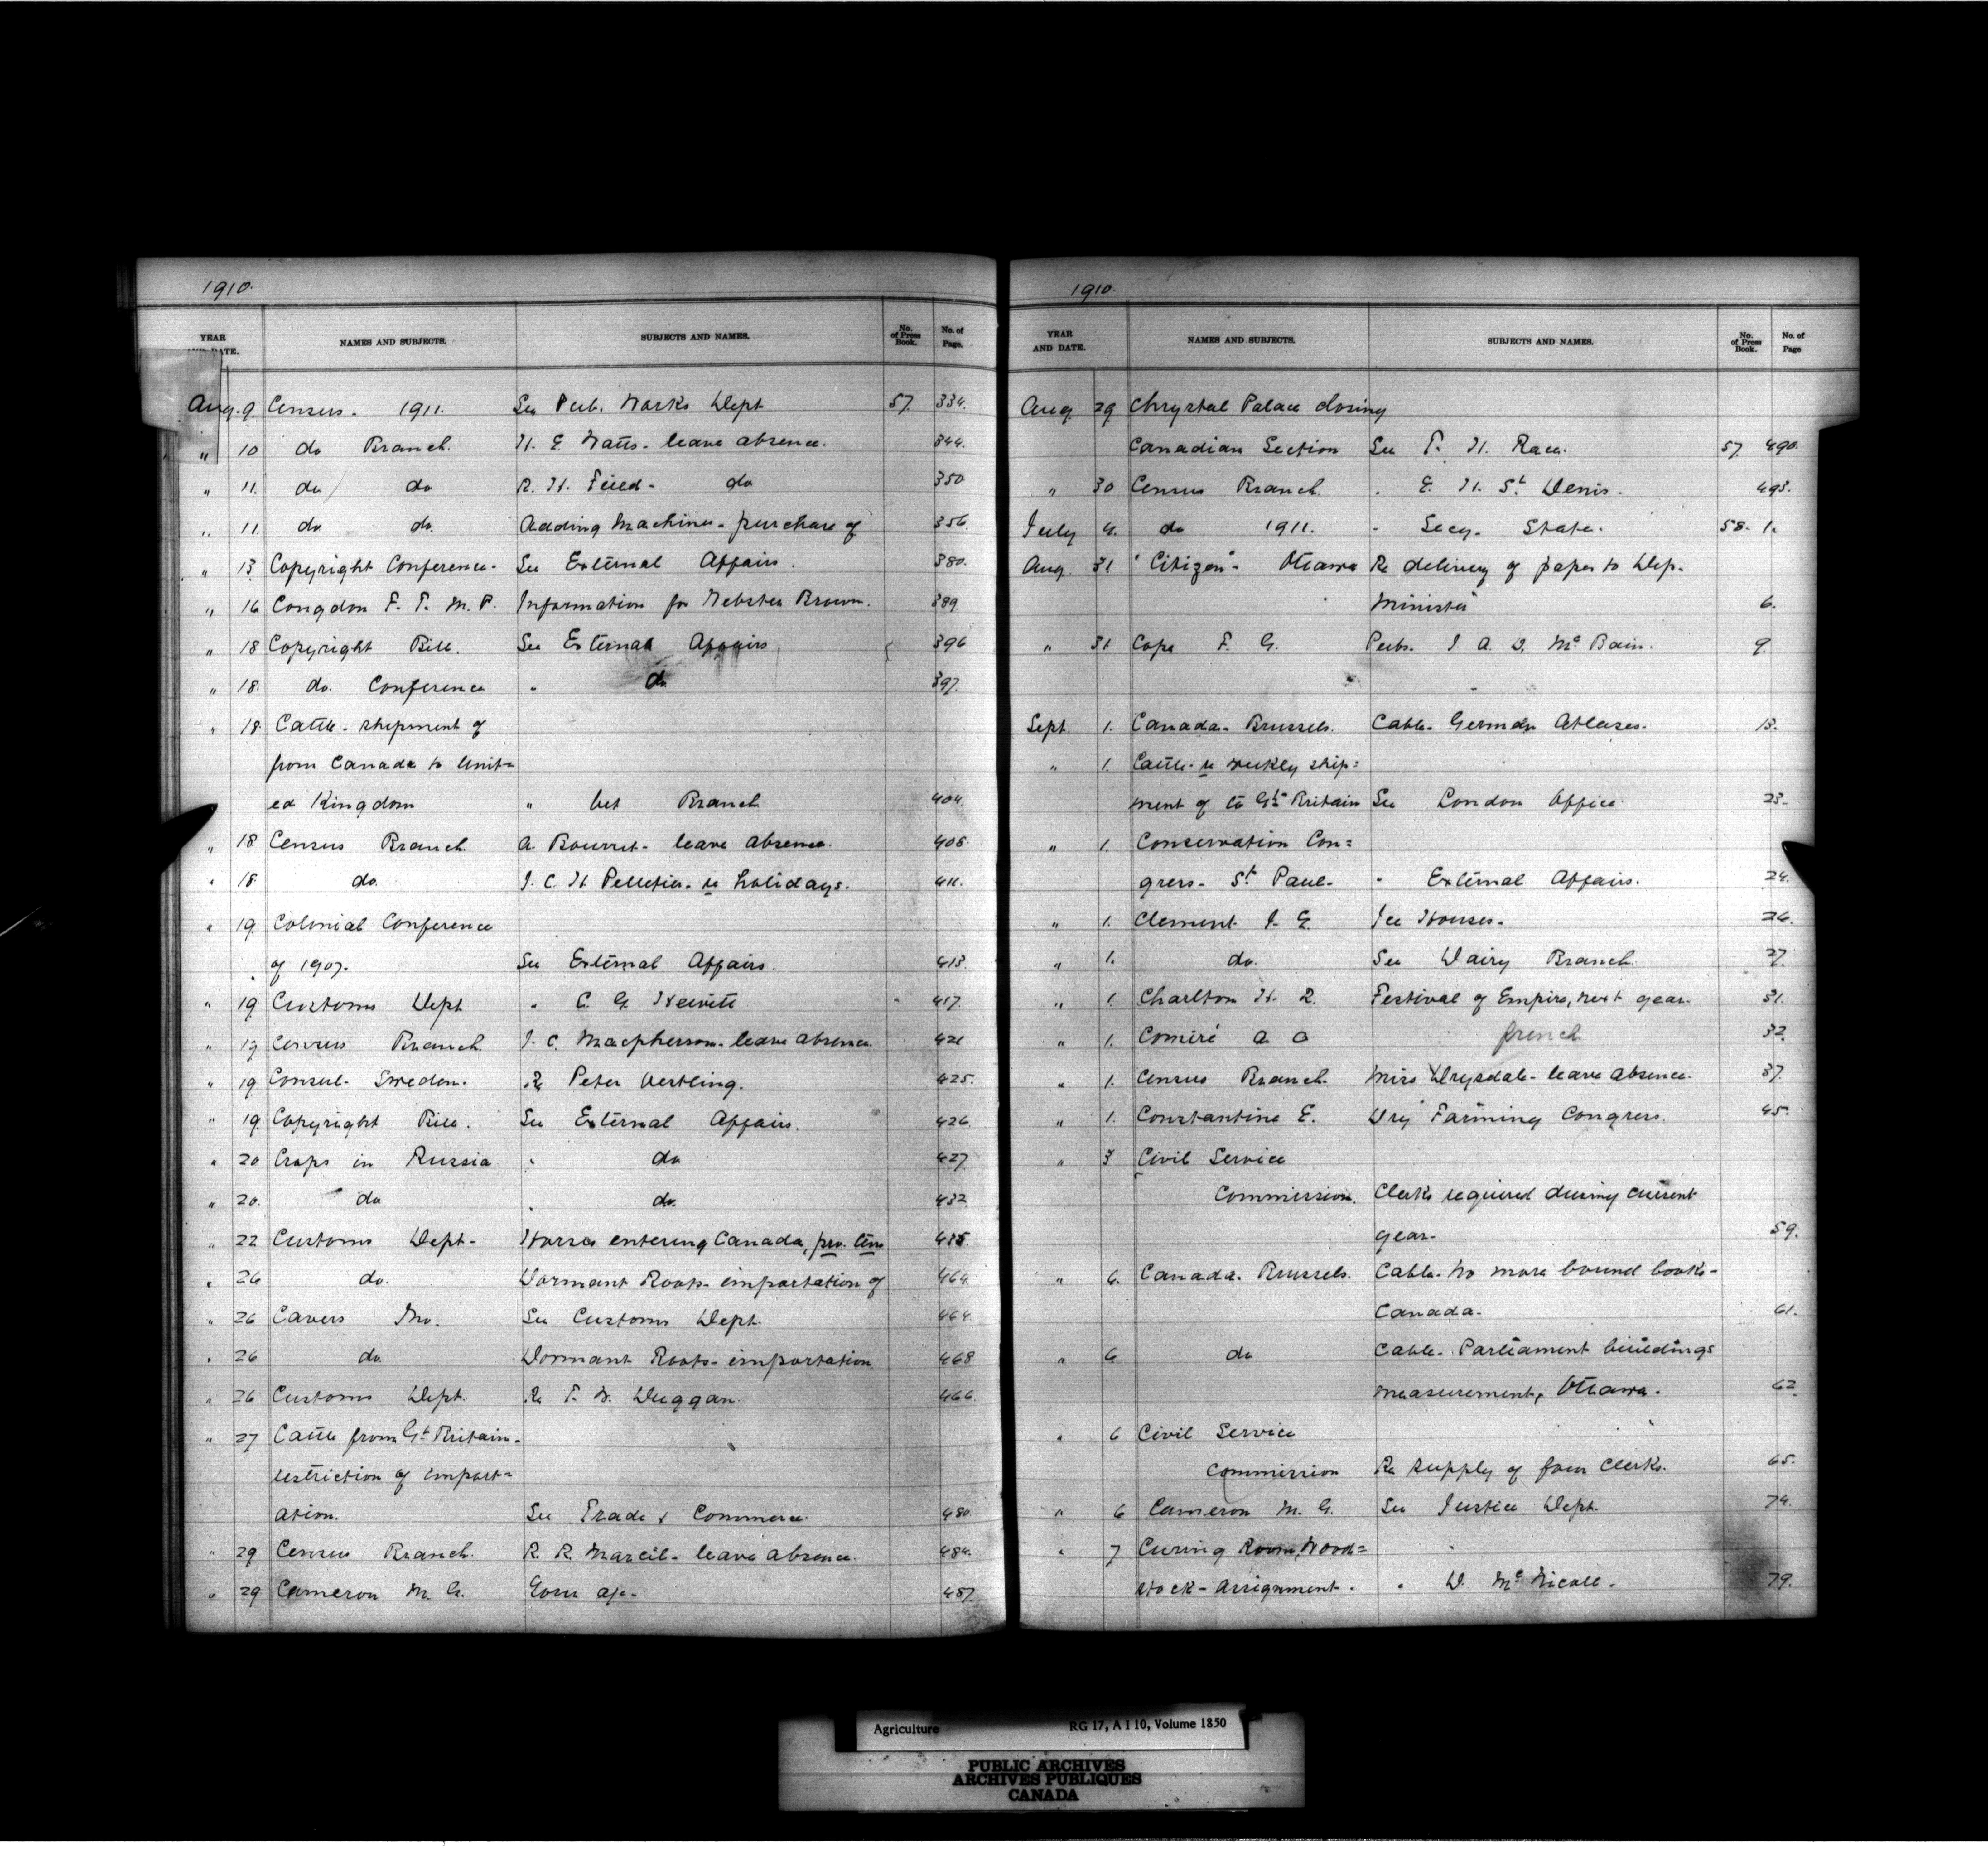 1910.
YEAR AND DATE. NAMES AND SUBJECTS. SUBJECTS AND NAMES. No. of Press Book. No. of Page.
Aug. 9. Census - 1911. See Pub. Works Dept 57. 334.
" 10 do Branch. H. E. Watts - leave absence. 344.
" 11. do do R. H. - do 350
" 11. do do. Adding Machines - purchase of 356.
" 13 Copyright Conference - See External Affairs. 380.
" 16 Congdon F. T. M. P. Information for Webster Brown. 389.
" 18 Copyright Bill. See External Affairs. 396
" 18. do. Conference " do 397.
" 18 Cattle - shipment of
from Canada to Unit=
ed Kingdom " Vet Branch 404.
" 18 Census Branch. A. Bourret - leave absence. 405.
" 18. do. J. C. H Pelletier - re holidays. 411.
" 19. Colonial Conference
of 1907. See External Affairs. 413.
" 19 Customs Dept " C. G. Hewitt 417.
" 19 Census Branch. J. C. Macpherson - leave absence. 421
" 19 Consul - Sweden. Re Peter Vertling. 425.
" 19 Copyright Bill. See External Affairs. 426
" 20 Crops in Russia " do 427
" 20. do " do. 432
" 22 Customs Dept - Horses entering Canada, pro. tem 435.
" 26 do. Dormant Roots - importation of 464.
" 26 Cavers Mr. See Customs Dept. 464.
" 26 do. Dormant Roots - importation 468
" 26 Customs Dept. Re T. W. Duggan. 466.
" 27 Cattle from Gt Britain -
restriction of import=
ation. See Trade & Commerce. 480.
" 29 Census Branch. R. R. Marcil - leave absence. 484.
" 29 Cameron M. G. 487.
1910.
YEAR AND DATE. NAMES AND SUBJECTS. SUBJECTS AND NAMES. No. of Press Book. No. of Page
Aug. 29 Chrystal Palace closing
Canadian Section See T. H. Race. 57. 490.
" 30 Census Branch. " E. H. St Denis. 493.
July 4. do 1911. " Secy. State. 58. 1.
Aug. 31 "Citizen" - Ottawa Re delivery of paper to Dep.
Minister 6.
" 31 Cope F. G. Pubs. J. A. D. McBain. 9.
Sept. 1. Canada - Brussels. Cable - German Atlases. 13.
" 1. Cattle - re weekly ship=
ment of to Gt Britain See London Office 23.
" 1. Conservation Con=
gress - St Paul - " External Affairs. 24.
" 1. Clement J. E. Ice Houses - 26.
" 1. do. See Dairy Branch. 27.
" 1. Charlton H. R. Festival of Empire, next year. 31.
" 1. Comiré A. O french 32.
" 1. Census Branch. Miss Drysdale - leave absence. 37.
" 1. Constantine E. Dry Farming Congress. 45.
" 3 Civil Service
Commission. Clerks required during current
year - 59.
" 6. Canada. Brussels. Cable - No more bound books -
Canada. 61.
" 6 do Cable - Parliament buildings
measurement, Ottawa. 62.
" 6 Civil Service
Commission Re supply of four Clerks. 65.
" 6 Cameron M. G. See Justice Dept. 74.
" 7 Curing Room, Wood=
stock - assignment. " D. McNicoll. 79.
Agriculture RG 17, A I 10, Volume 1850
PUBLIC ARCHIVES
ARCHIVES PUBLIQUES
CANADA